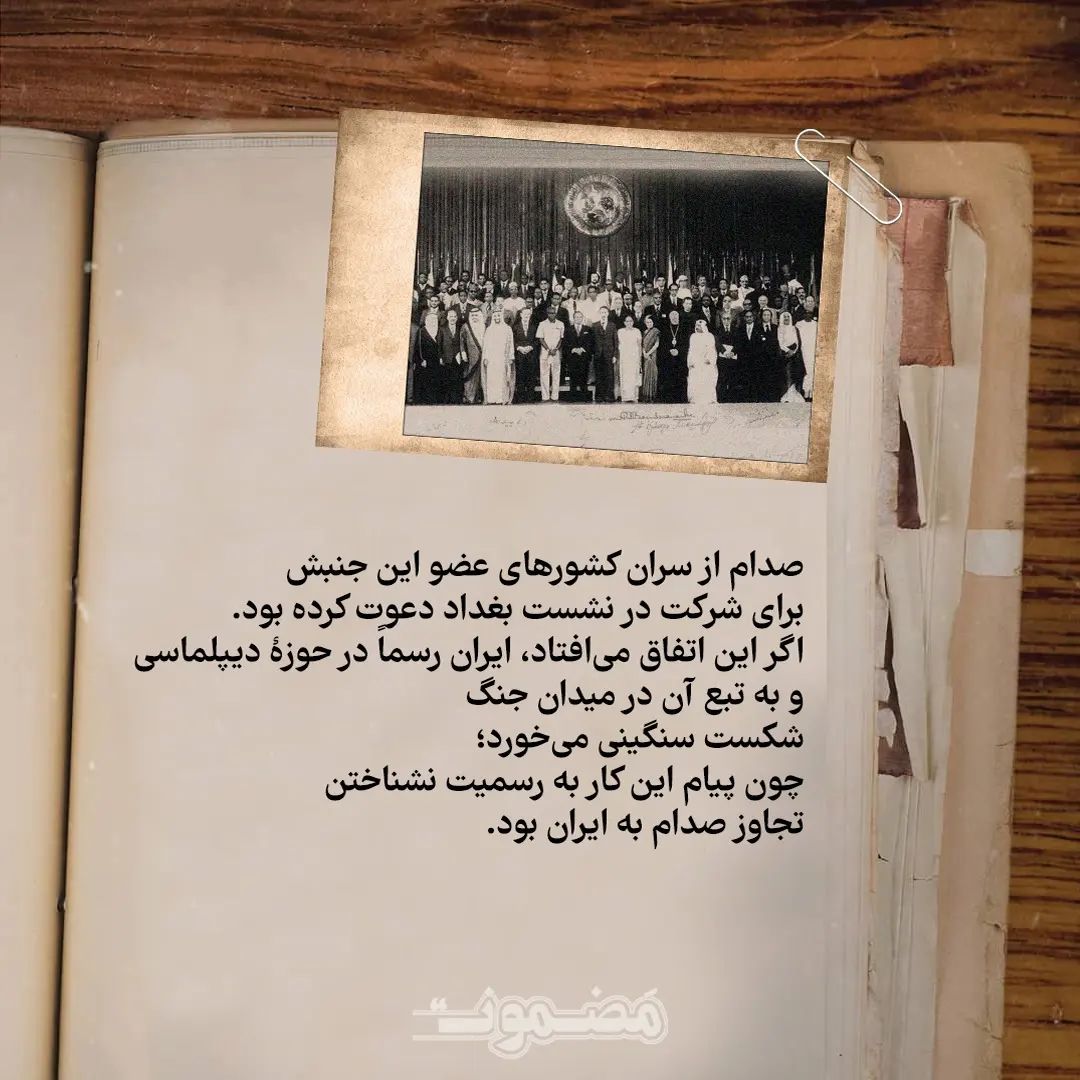 صدام از سران کشورهای عضو این جنبش
برای شرکت در نشست بغداد دعوت کرده بود.
اگر این اتفاق می‌افتاد، ایران رسماً در حوزهٔ دیپلماسی
و به تبع آن در میدان جنگ
شکست سنگینی می‌خورد؛
چون پیام این کار به رسمیت نشناختن
تجاوز صدام به ایران بود.
مَضمون